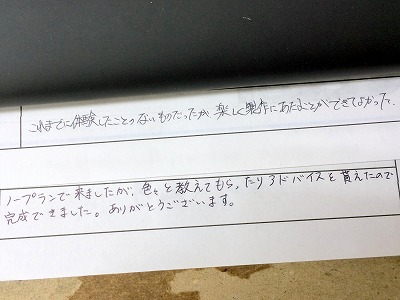 これまでに体験したことのないものだったが、楽しく製作にあたることができてよかった。
ノープランで来ましたが、色々と教えてもらったりアドバイスを貰えたので
完成できました。ありがとうございます。